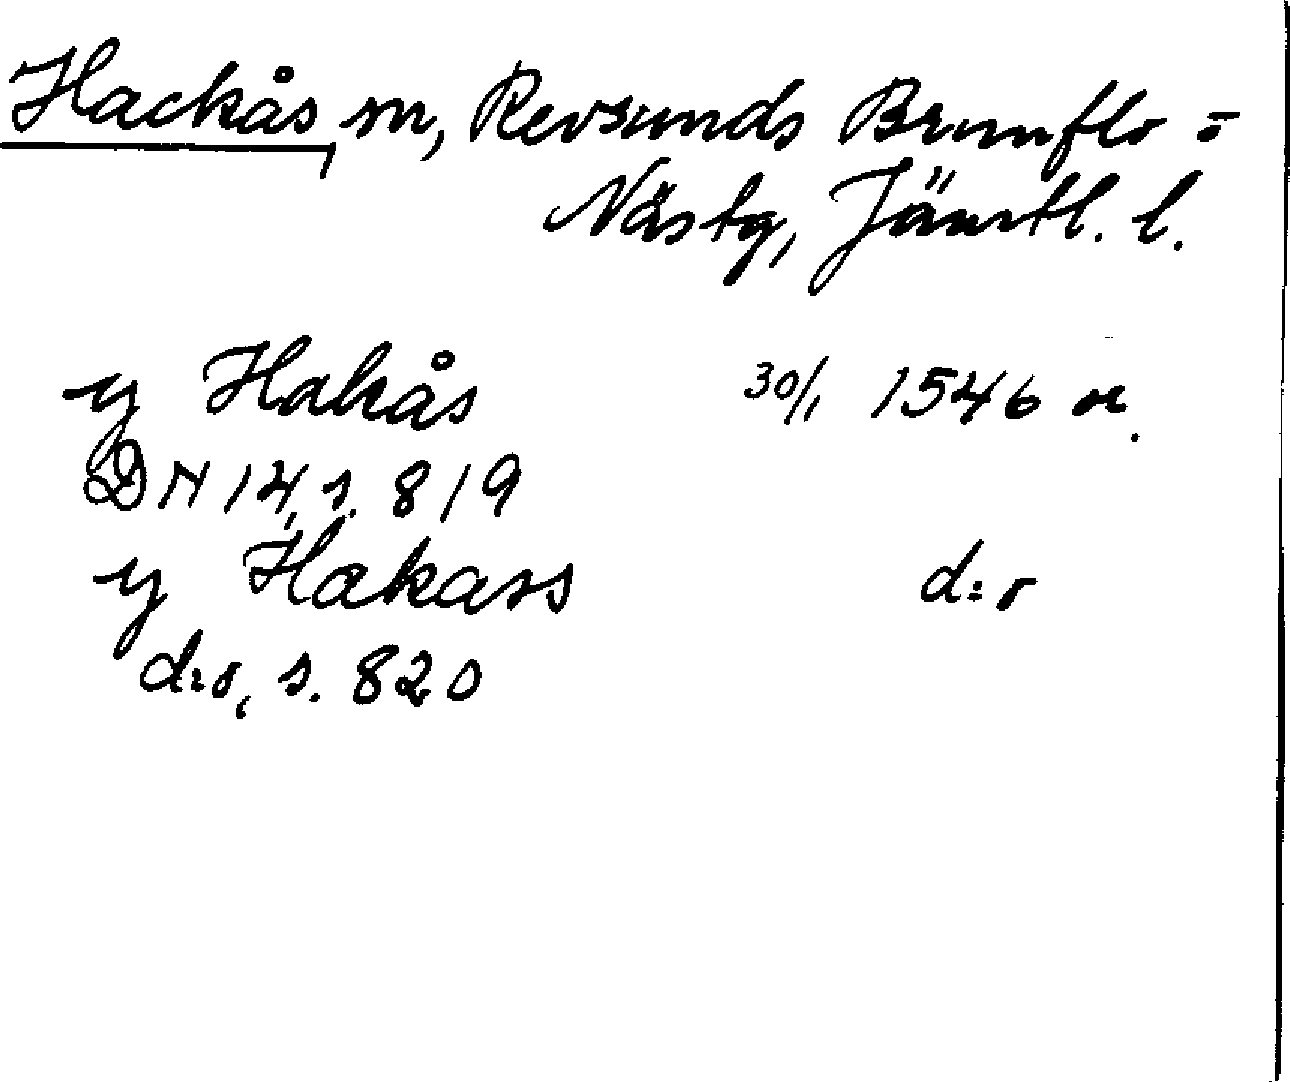 Hackås, sn, Revsunds Brunflo o
Näs tg, Jämtl. l.
y Hakås 30/1 1546 or.
DN 14, s. 819
y Hakass d:o
d:o, s. 820